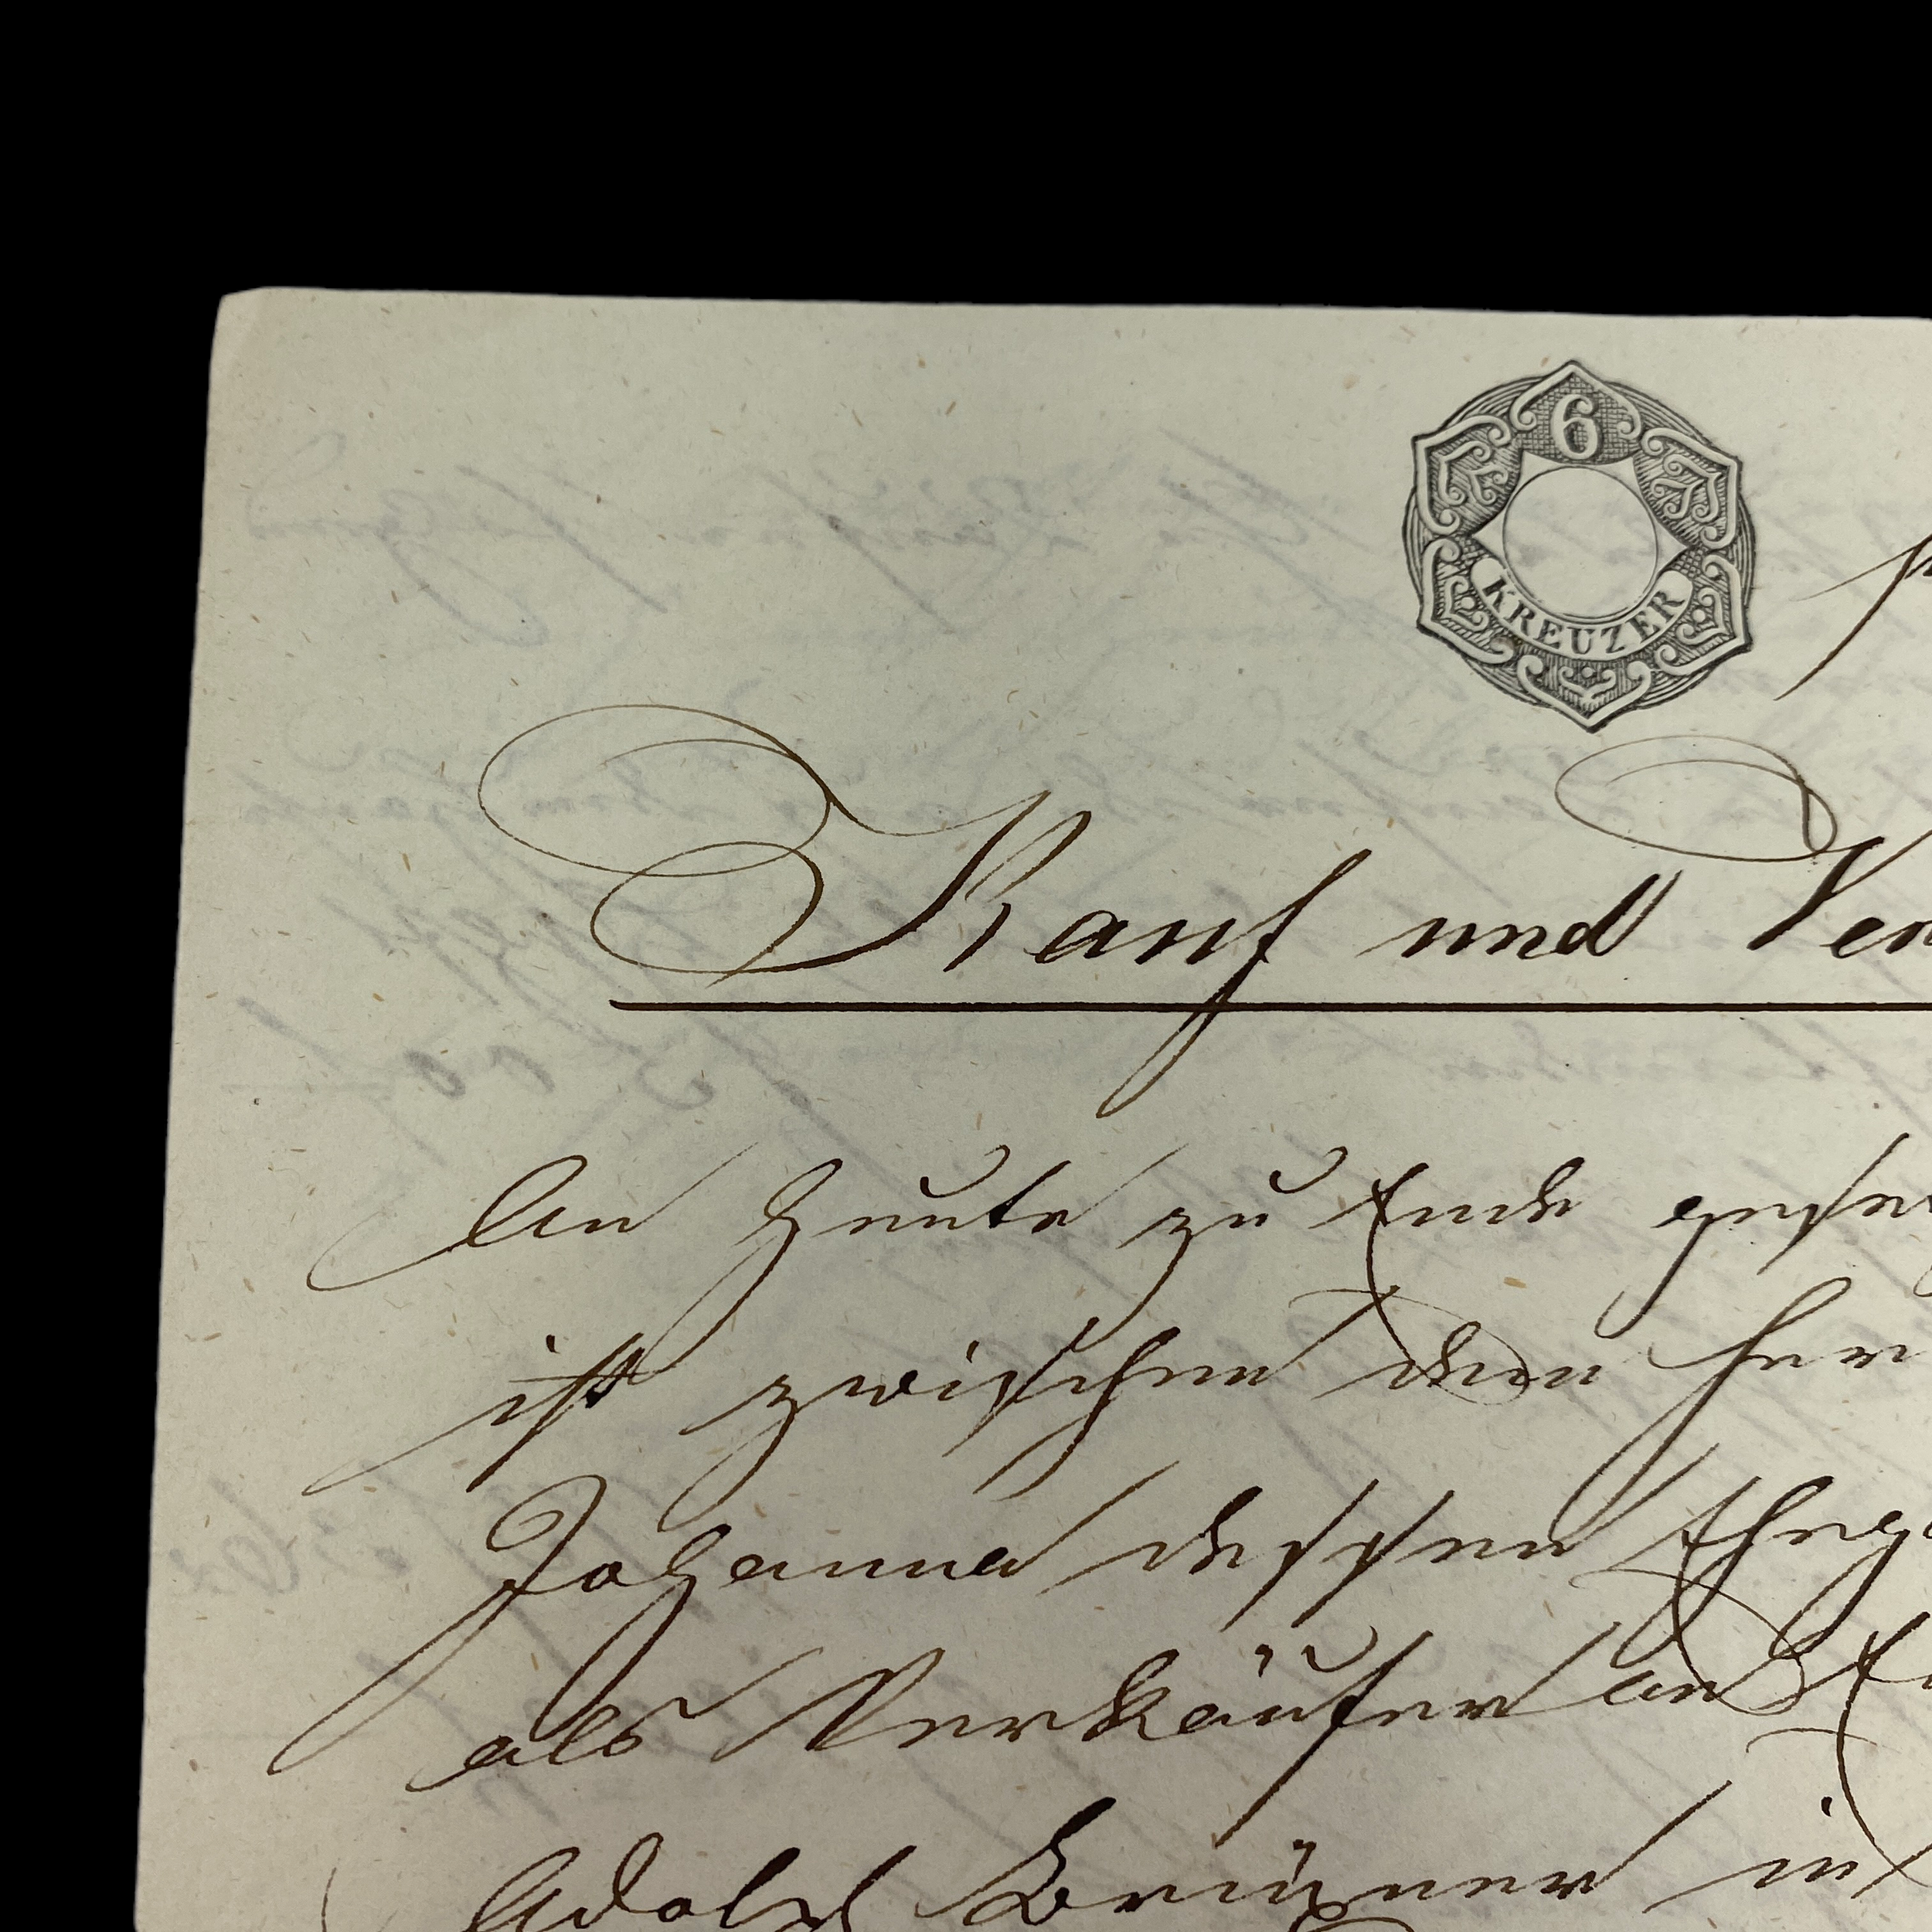 6
KREUZER
Kauf und Ver
An heute zu Ende gese
ist zwischen dem Her
Johanna dessen Ehega
als Verkäufer an E
Adolf Brüxner in